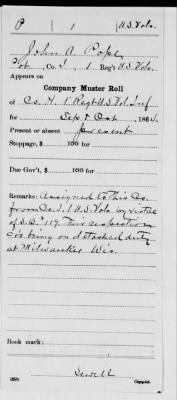 P | 1 | U.S. Vols.
John A. Pope
Pvt., Co. I, 1 Reg't U.S. Vols.
Appears on
Company Muster Roll
of Co. H, 1 Regt U.S. Vol. Inf
for Sept & Oct, 1864.
Present or absent present
Stoppage, $ 100 for
Due Gov't, $ 100 for
Remarks: Assigned to this Co.
from Co. I. 1 U.S. Vols by virtue
of S.O. 119. His respective
Co's being on detached duty
at Milwaukee Wis.
Book mark:
Sewell
(358) Copyist.